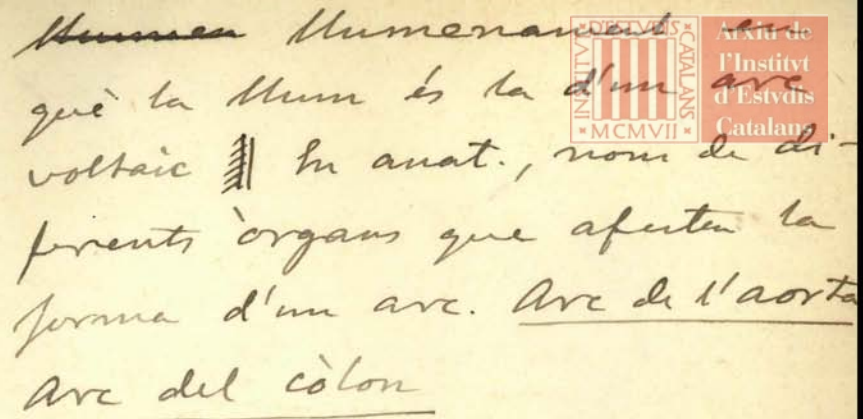 ~~Llumen~~ Llumenament en
què la llum és la d'un arc
voltaic || En anat., nom de di-
ferents òrgans que afecten la
forma d'un arc. Arc de l'aorta
Arc del còlon
INSTITVT D'ESTVDIS CATALANS
MCMVII
Arxiu de
l'Institvt
d'Estvdis
Catalans